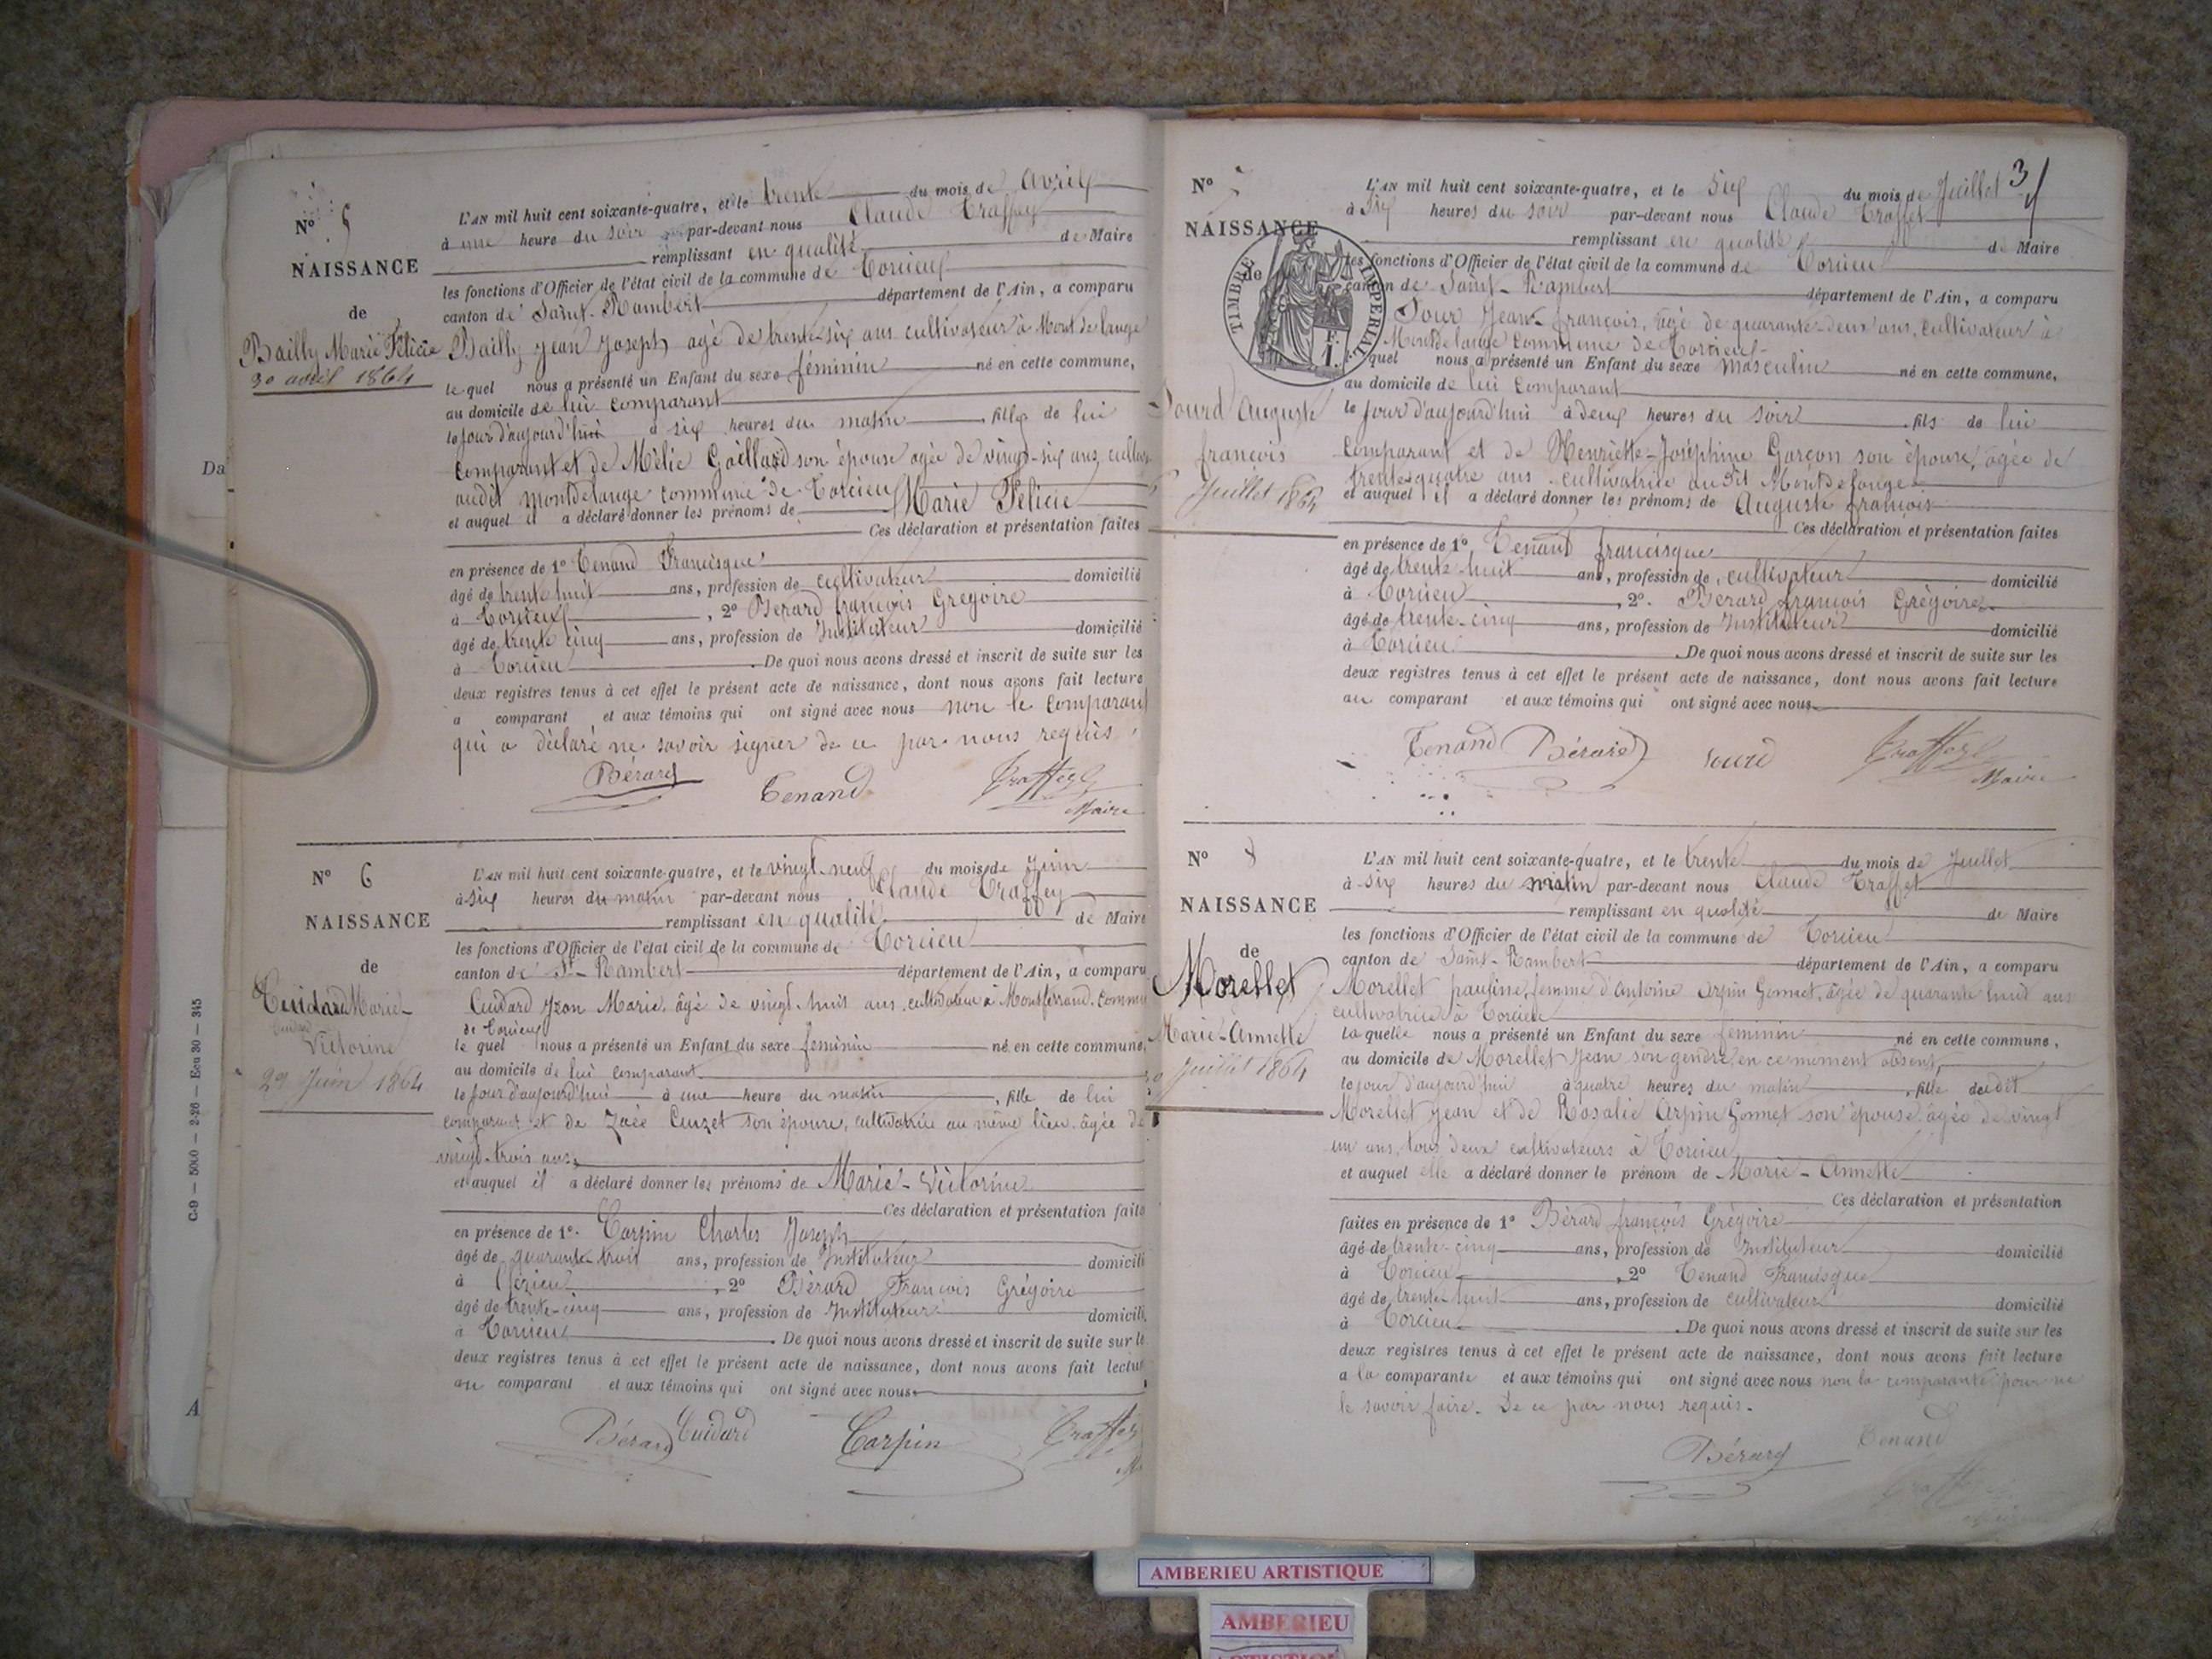 Nº 5
NAISSANCE
de
Bailly Marie Félicie
30 avril 1864
L'AN mil huit cent soixante-quatre, et le trente du mois de avril
à une heure du soir par-devant nous Claude Traffey
remplissant en qualité de Maire
les fonctions d'Officier de l'état civil de la commune de Torcieu
canton de Saint-Rambert département de l'Ain, a comparu
Bailly Jean Joseph agé de trente-six ans cultivateur à Mont de lange
le quel nous a présenté un Enfant du sexe féminin né en cette commune,
au domicile de lui comparant
le jour d'aujourd'hui à six heures du matin fille de lui
comparant et de Mélie Gaillard son épouse agée de vingt-six ans
audit montdelange commune de Torcieu
et auquel il a déclaré donner les prénoms de Marie Félicie
Ces déclaration et présentation faites
en présence de 1º Tenand Francisque
âgé de trente huit ans, profession de cultivateur domicilié
à Torcieu, 2º Berard françois Grégoire
âgé de trente cinq ans, profession de Instituteur domicilié
à Torcieu. De quoi nous avons dressé et inscrit de suite sur les
deux registres tenus à cet effet le présent acte de naissance, dont nous avons fait lecture
a comparant et aux témoins qui ont signé avec nous non le comparant
qui a déclaré ne savoir signer de ce par nous requis
Bérard Tenand Traffey
Maire
Nº 6
NAISSANCE
de
Cuidard Marie
Victorine
29 Juin 1864
L'AN mil huit cent soixante-quatre, et le vingt-neuf du mois de Juin
à six heures du matin par-devant nous Claude Traffey
remplissant en qualité de Maire
les fonctions d'Officier de l'état civil de la commune de Torcieu
canton de St-Rambert département de l'Ain, a comparu
Cuidard Jean Marie, âgé de vingt-huit ans, cultivateur à Montferrand. Commu
de Torcieu
le quel nous a présenté un Enfant du sexe féminin né en cette commune,
au domicile de lui comparant
le jour d'aujourd'hui à une heure du matin, fille de lui
comparant et de Zoée Cuzet son épouse, cultivatrice au même lieu, âgée de
vingt-trois ans
et auquel il a déclaré donner les prénoms de Marie-Victorine
Ces déclaration et présentation faite
en présence de 1º. Carpin Charles Joseph
âgé de quarante-trois ans, profession de Instituteur domicili
à, 2º Bérard François Grégoire
âgé de trente-cinq ans, profession de Instituteur domicili
à Torcieu. De quoi nous avons dressé et inscrit de suite sur le
deux registres tenus à cet effet le présent acte de naissance, dont nous avons fait lectur
au comparant et aux témoins qui ont signé avec nous.
Bérard Cuidard Carpin Traffey
Nº 7
NAISSANCE
de
TIMBRE IMPERIAL
Sourd Auguste
françois
Juillet 1864
3
L'AN mil huit cent soixante-quatre, et le Six du mois de Juillet
à Six heures du soir par-devant nous Claude Traffet
remplissant en qualité de Maire
les fonctions d'Officier de l'état civil de la commune de Torcieu
canton de Saint-Rambert département de l'Ain, a comparu
Sour Jean-françois, âgé de quarante-deux ans, cultivateur à
Montdelange commune de Torcieu
quel nous a présenté un Enfant du sexe masculin né en cette commune,
au domicile de lui comparant
le jour d'aujourd'hui à deux heures du soir fils de lui
comparant et de Henriette-Joséphine Garçon son épouse, âgée de
trente-quatre ans cultivatrice audit Montdelange
et auquel il a déclaré donner les prénoms de Auguste françois
Ces déclaration et présentation faites
en présence de 1º. Tenand francisque
âgé de trente huit ans, profession de cultivateur domicilié
à Torcieu, 2º. Berard françois Grégoire
âgé de trente-cinq ans, profession de Instituteur domicilié
à Torcieu. De quoi nous avons dressé et inscrit de suite sur les
deux registres tenus à cet effet le présent acte de naissance, dont nous avons fait lecture
au comparant et aux témoins qui ont signé avec nous
Tenand Bérard sourd Traffey
Maire
Nº 8
NAISSANCE
de
Morellet
Marie-Annette
30 Juillet 1864
L'AN mil huit cent soixante-quatre, et le trente du mois de Juillet
à six heures du matin par-devant nous Claude Traffet
remplissant en qualité de Maire
les fonctions d'Officier de l'état civil de la commune de Torcieu
canton de Saint-Rambert département de l'Ain, a comparu
Morellet pauline, femme d'Antoine Arpin Gonnet, âgée de quarante huit ans
cultivatrice à Torcieu
la quelle nous a présenté un Enfant du sexe féminin né en cette commune,
au domicile de Morellet Jean son gendre, en ce moment absent,
le jour d'aujourd'hui à quatre heures du matin, fille dudit
Morellet Jean et de Rosalie Arpin Gonnet son épouse, âgée de vingt
un ans, tous deux cultivateurs à Torcieu
et auquel elle a déclaré donner le prénom de Marie-Annette
Ces déclaration et présentation
faites en présence de 1º Bérard françois Grégoire
âgé de trente-cinq ans, profession de Instituteur domicilié
à Torcieu, 2º Tenand Francisque
âgé de trente-huit ans, profession de cultivateur domicilié
à Torcieu. De quoi nous avons dressé et inscrit de suite sur les
deux registres tenus à cet effet le présent acte de naissance, dont nous avons fait lecture
a la comparante et aux témoins qui ont signé avec nous non la comparante pour ne
le savoir faire. De ce par nous requis.
Bérard Tenand
Da
C-9 — 5000 — 2-26 — Eeu 30 — 345
A
AMBERIEU ARTISTIQUE
AMBERIEU
ARTISTIQUE